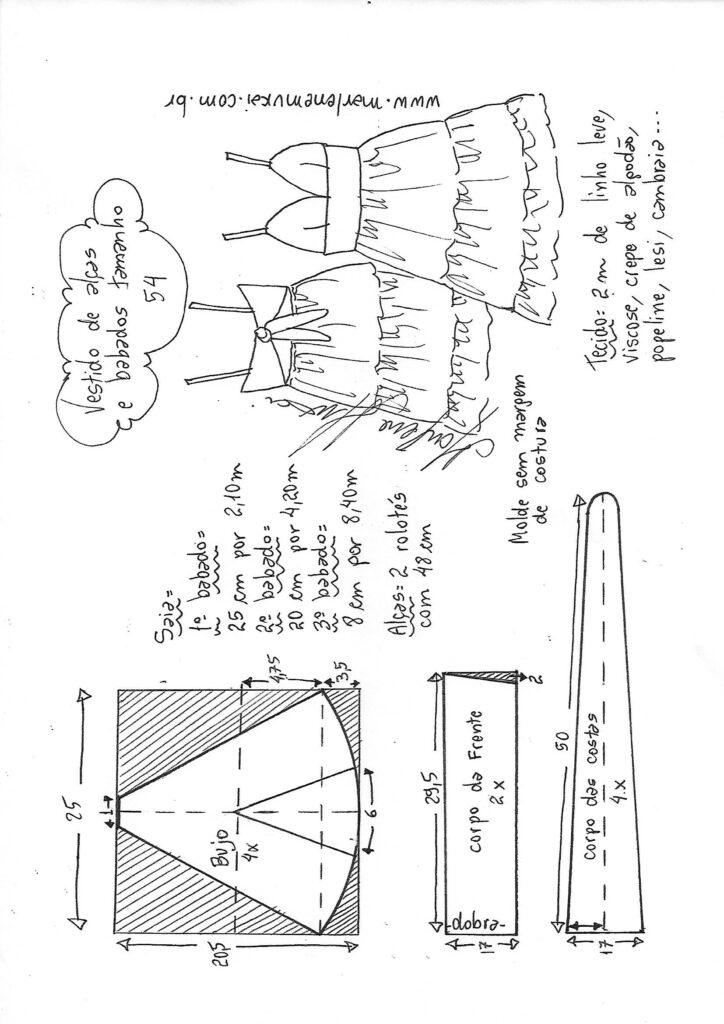 Vestido de alças
e babados tamanho
54
www.marlenemukai.com.br
Tecido= 2 m de linho leve,
viscose, crepe de algodão,
popeline, lesi, cambraia...
Saia=
1º babado=
25 cm por 2,10m
2º babado=
20 cm por 4,20m
3º babado=
8 cm por 8,40m
Alças= 2 rolotés
com 48 cm
Marlene
Mukai
Molde sem margem
de costura
25
1
4,75
3,5
Bujo
4x
6
20,5
29,5
corpo da Frente
2x
-dobra-
17
2
50
corpo das costas
4x
17